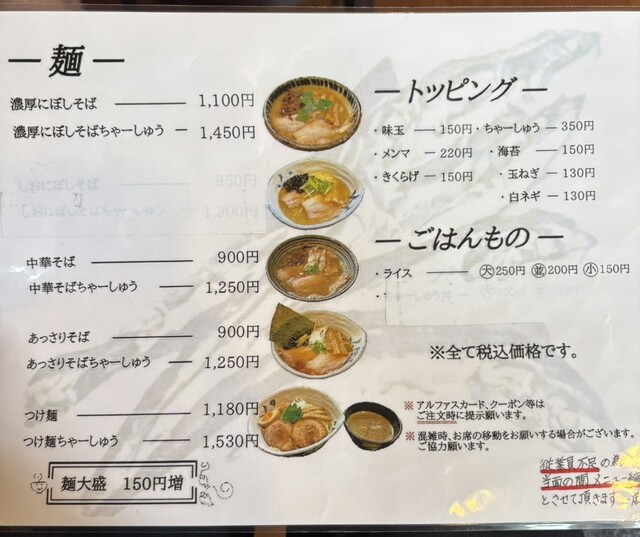 麺
濃厚にぼしそば 1,100円
濃厚にぼしそばちゃーしゅう 1,450円
しおにぼしそば 950円
しおにぼしそばちゃーしゅう 1,300円
中華そば 900円
中華そばちゃーしゅう 1,250円
あっさりそば 900円
あっさりそばちゃーしゅう 1,250円
つけ麺 1,180円
つけ麺ちゃーしゅう 1,530円
麺大盛 150円増
トッピング
・味玉 150円 ・ちゃーしゅう 350円
・メンマ 220円 ・海苔 150円
・きくらげ 150円 ・玉ねぎ 130円
・白ネギ 130円
ごはんもの
・ライス 大250円 並200円 小150円
※全て税込価格です。
※ アルファスカード、クーポン等は
ご注文時に提示願います。
※ 混雑時、お席の移動をお願いする場合がございます。
ご協力願います。
従業員不足の為
当面の間メニュー
とさせて頂きます